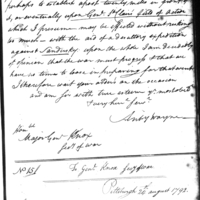 perhaps to establish a post twenty miles in
or, eventually upon Genl St Clairs field of action
which I presume may be effected without risking
so much — with the aid of a desultory expedition
against Sandusky upon the whole I am decidedly
of opinion that the war must progress & that we
have no time to lose in preparing for that event
I therefore wait your orders on the occasion
and am for with true esteem
Your very Hum Sert
Anty Wayne
Honble
Major Genl Knox
Secty of war
No 151
To Genl Knox
Pittsburgh 24 august 1792.